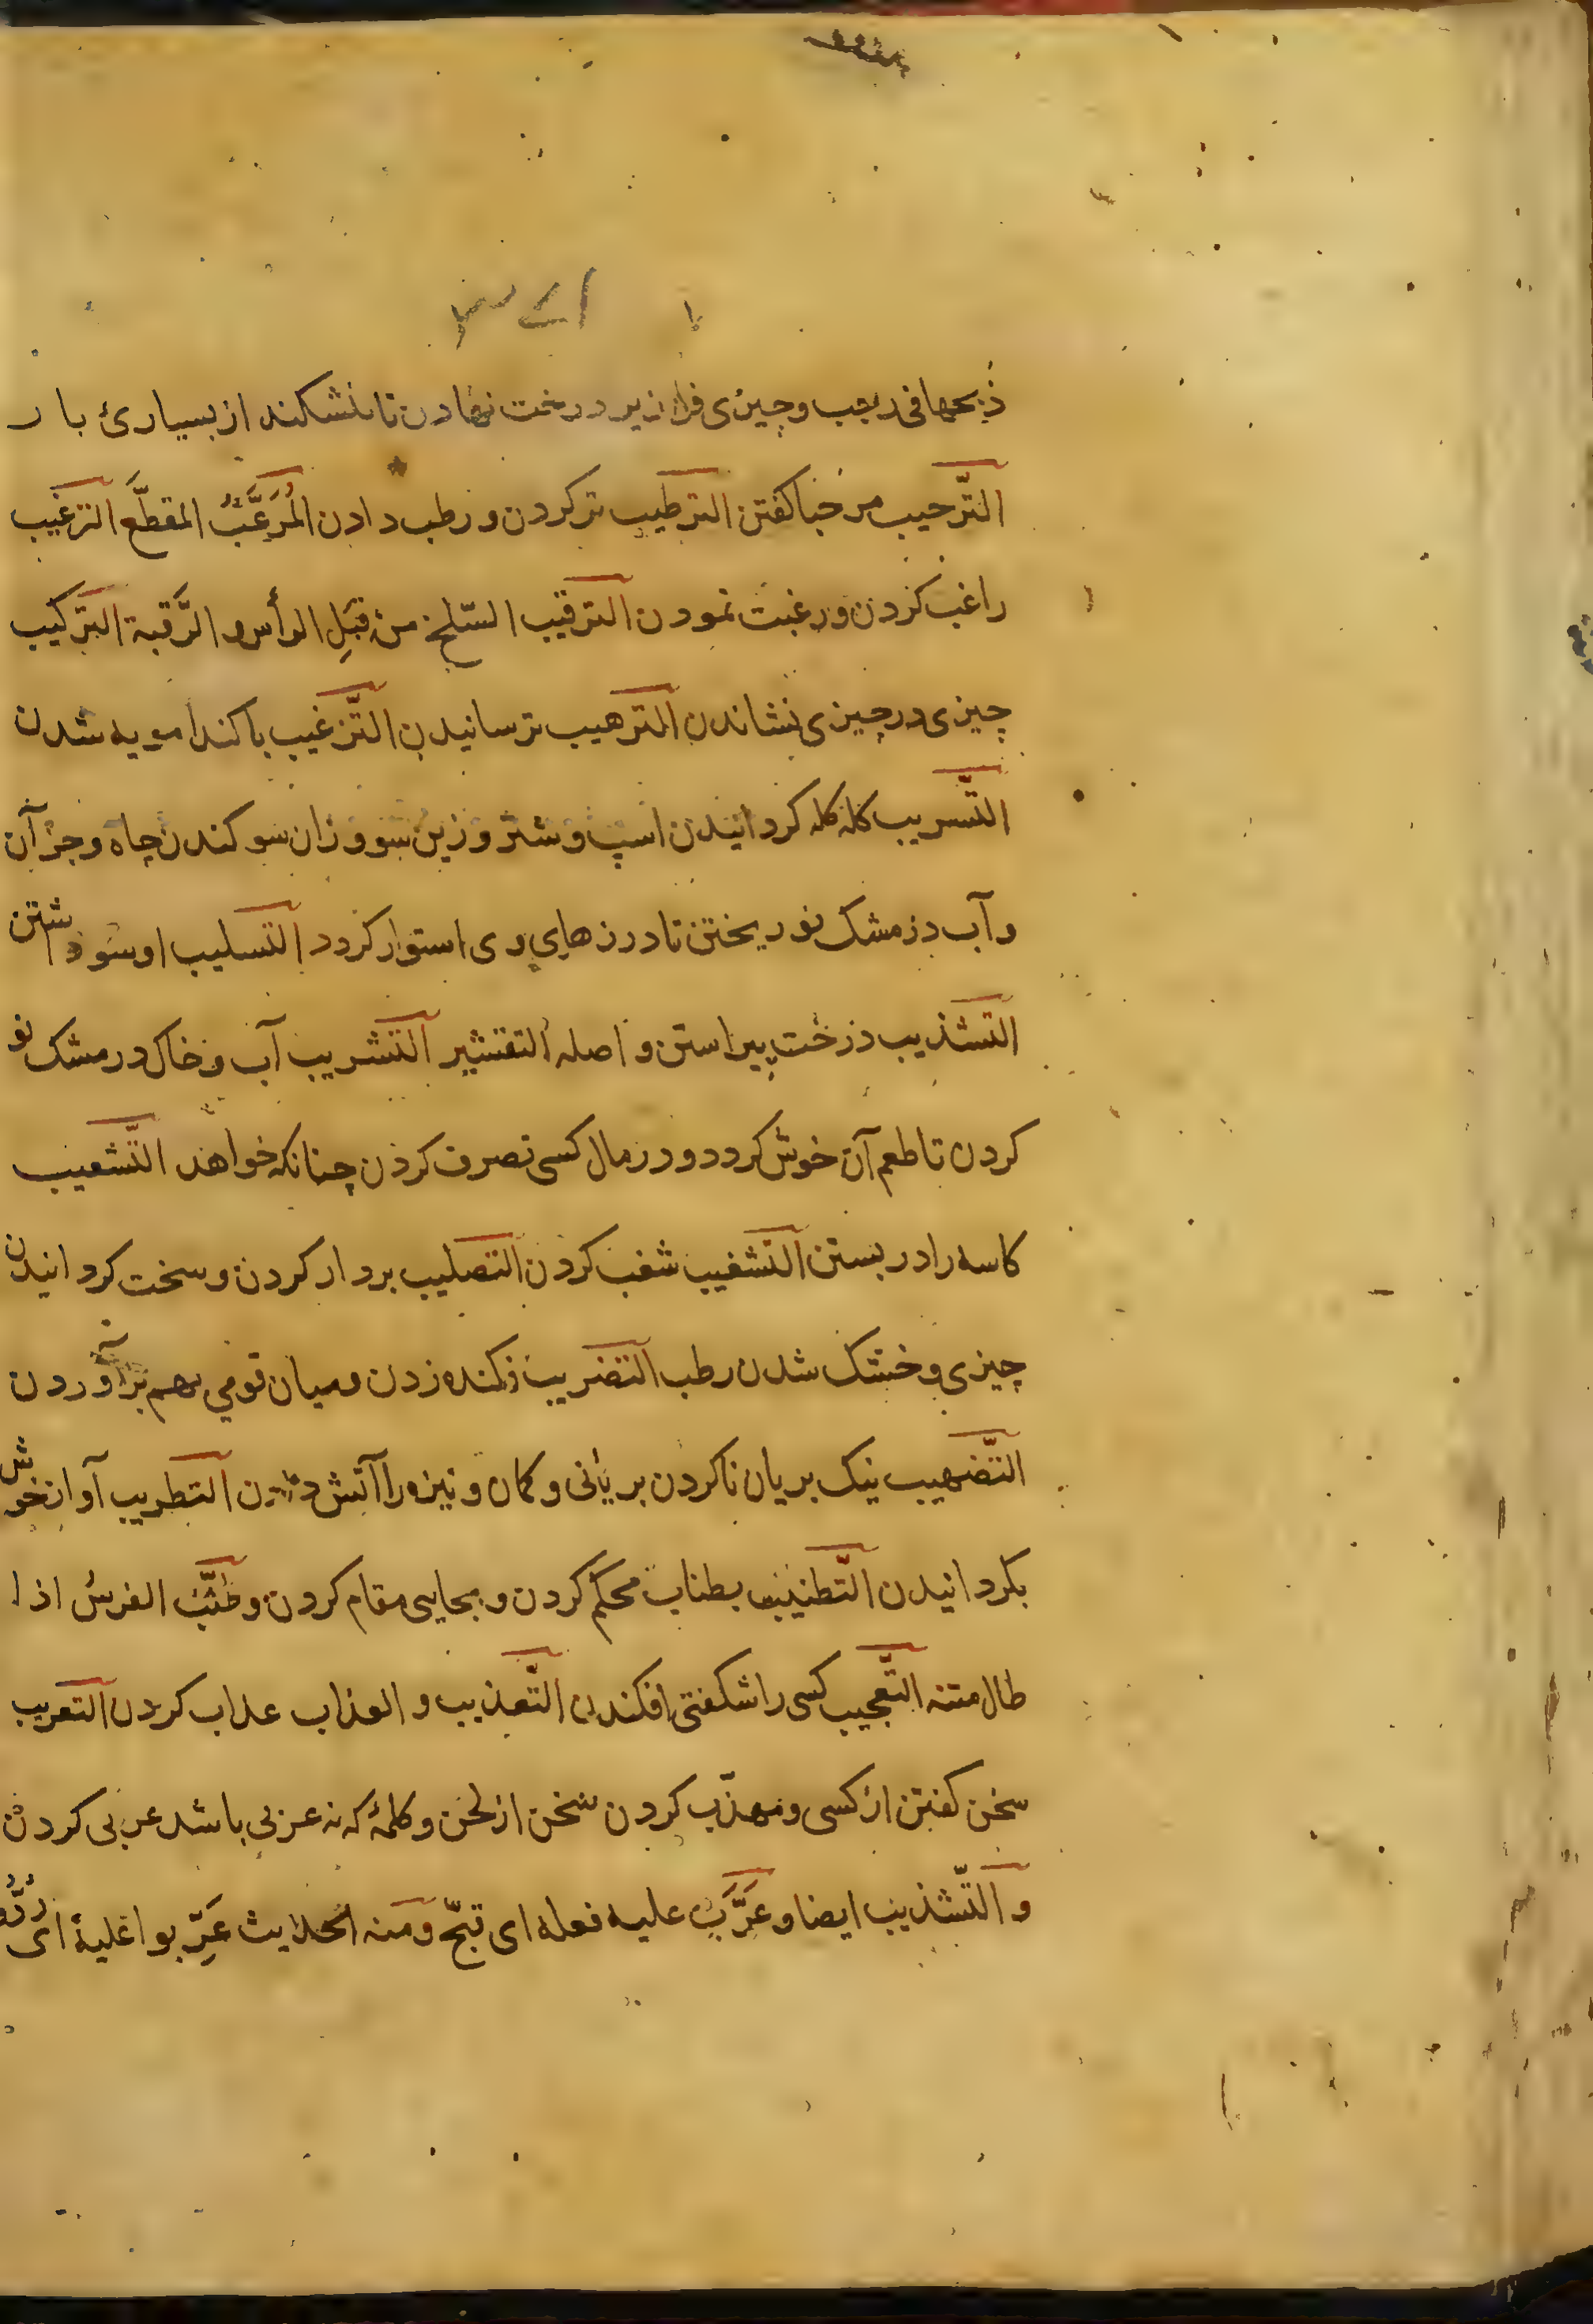 ذبحها فی رجب و چیزی فرا زیر درخت نهادن تا نشکند از بسیاریٔ بار
التَّرحیب مرحبا کفتن الترطیب تر کردن و رطب دادن المُرَعَّبُ المقطَّع الترغیب
راغب کردن و رغبت نمودن الترقیب السّلخ من قبَلِ الرأس و الرَّقبة الترکیب
چیزی در چیزی نشاندن الترهیب ترسانیدن التَّزغیب باکندامویه شدن
التَّسریب کله کله کردانیدن اسپ و شتر و زین سو و زان سو کندن چاه و جز آن
و آب در مشک نو ریختن تا درزهای وی استوار کردد التسلیب او سوک داشتن
التشذیب درخت پیراستن و اصله التقشیر التشریب آب و خاک در مشک نو
کردن تا طعم آن خوش کردد و در مال کسی تصرف کردن چنانکه خواهد التَّشعیب
کاسه را در بستن التشغیب شغب کردن التصلیب بر دار کردن و سخت کردانیدن
چیزی و خشک شدن رطب التضریب زکنده زدن و میان قومی بهم برآوردن
التَّضهیب نیک بریان ناکردن بریانی و کمان و نیزه را آتش دادن التطریب آواز خوش
بکردانیدن التَّطنیب بطناب محکم کردن و بجایی مقام کردن و طنَّب الفرس اذا
طال متنه التَّعجیب کسی را شکفتی افکندن التَّعذیب و العذاب عذاب کردن التعریب
سخن کفتن از کسی و مهذّب کردن سخن از لحن و کلمهٔ که نه عربی باشد عربی کردن
و التَّشذیب ایضا و عَرَّبَ علیه فعله ای قبّح و منه الحدیث عَرِّبوا علیه ای رُدُّوا